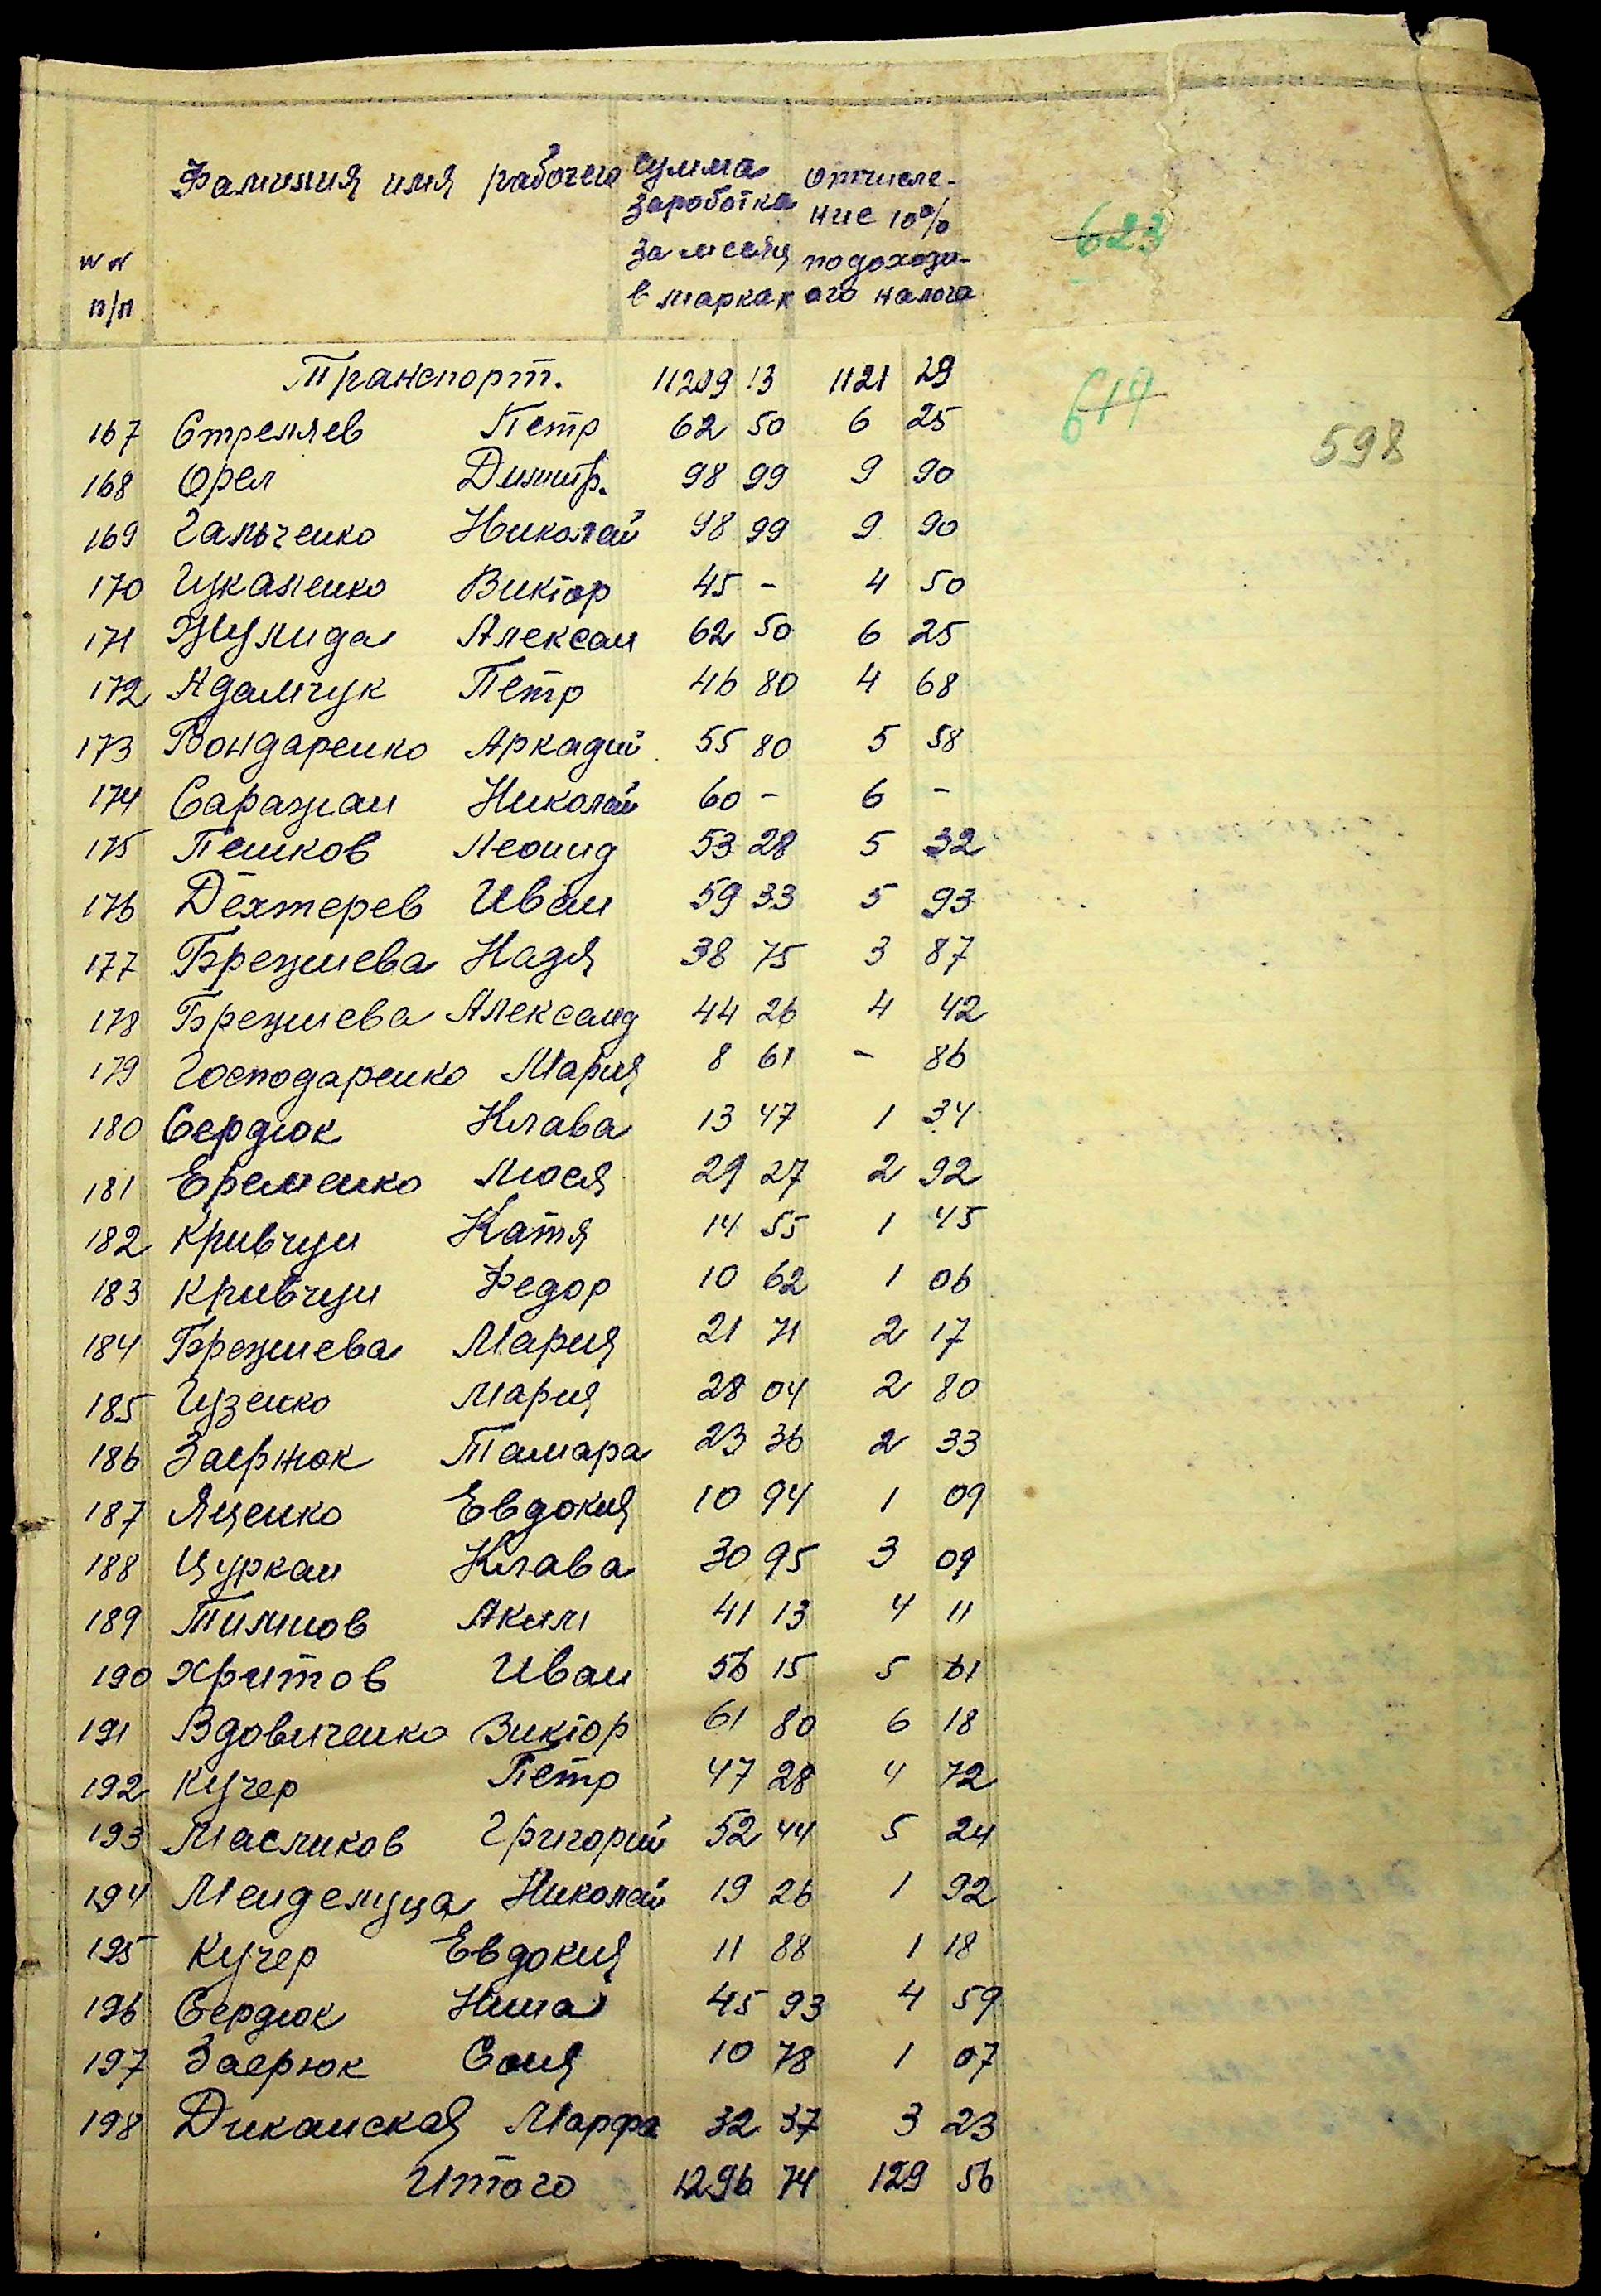 Фамилия имя рабочего
сумма заработка за месяц в марках
отчисление 10% подоходн-ого налога
№№ п/п
623
Транспорт. 11209 13 1121 29
619
598
167 Стреляев Петр 62 50 6 25
168 Орел Димитр. 98 99 9 90
169 Гальченко Николай 98 99 9 90
170 Цуканенко Виктор 45 - 4 50
171 Жулида Алексан 62 50 6 25
172 Адамчук Петр 46 80 4 68
173 Бондаренко Аркадий 55 80 5 58
174 Саражан Николай 60 - 6 -
175 Пешков Леонид 53 28 5 32
176 Дехтерев Иван 59 33 5 93
177 Брежнева Надя 38 75 3 87
178 Брежнева Александ 44 26 4 42
179 Господаренко Мария 8 61 - 86
180 Сердюк Клава 13 47 1 34
181 Еременко Люся 29 27 2 92
182 Кривчун Катя 14 55 1 45
183 Кривчун Федор 10 62 1 06
184 Брежнева Мария 21 71 2 17
185 Гузенко Мария 28 04 2 80
186 Заернюк Тамара 23 36 2 33
187 Яценко Евдокия 10 94 1 09
188 Цуркан Клава 30 95 3 09
189 Тимпов Аким 41 13 4 11
190 Хритов Иван 56 15 5 61
191 Вдовиченко Виктор 61 80 6 18
192 Кучер Петр 47 28 4 72
193 Масликов Григорий 52 44 5 24
194 Менделуца Николай 19 26 1 92
195 Кучер Евдокия 11 88 1 18
196 Сердюк Нина 45 93 4 59
197 Заерюк Соня 10 78 1 07
198 Диканская Марфа 32 37 3 23
Итого 1296 74 129 56